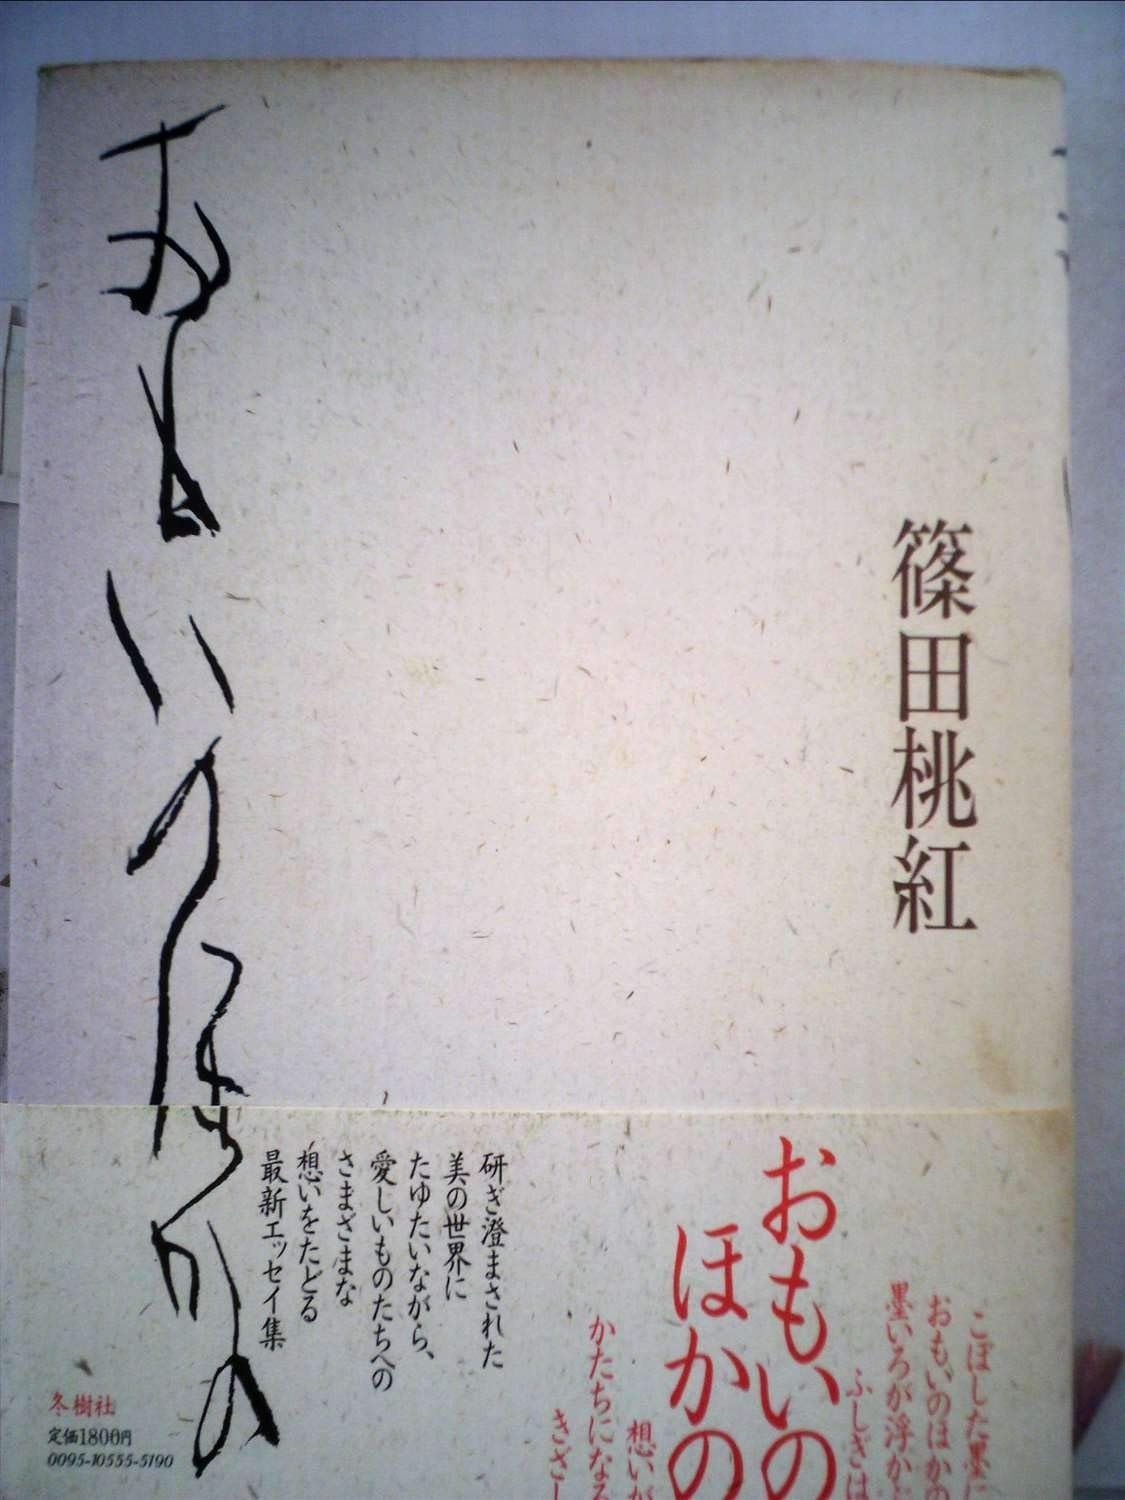 篠田桃紅
おもいのほかの
おもいの
ほかの
こぼした墨に
おもいのほかの
墨いろが浮かど
ふしぎは
想いが
かたちになる
きざし
研ぎ澄まされた
美の世界に
たゆたいながら、
愛しいものたちへの
さまざまな
想いをたどる
最新エッセイ集
冬樹社
定価1800円
0095-10555-5190